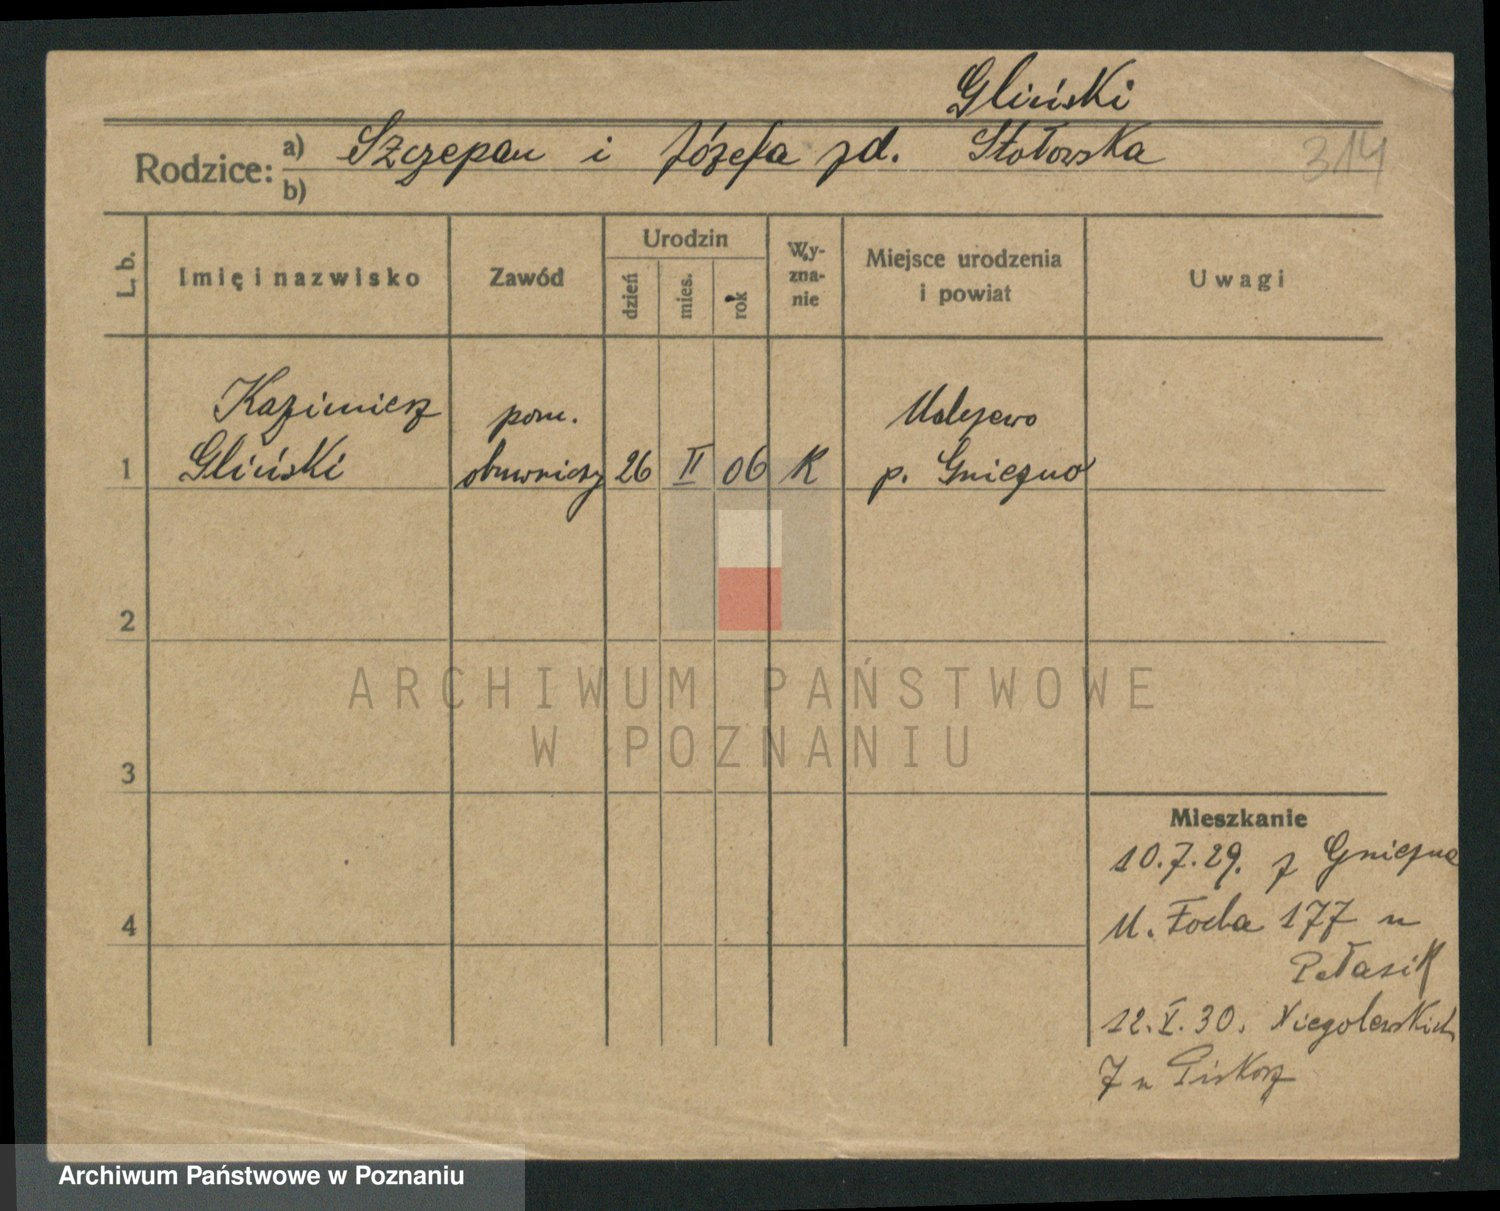 Gliński
Rodzice: a) Szczepan i Józefa zd. Stołowska 314
b)
L. b.
Imię i nazwisko
Zawód
Urodzin
dzień
mies.
rok
Wy-
zna-
nie
Miejsce urodzenia
i powiat
Uwagi
1
Kazimierz
Gliński
pom.
obuwniczy
26
II
06
K
p. Gniezno
2
3
4
ARCHIWUM PAŃSTWOWE
W POZNANIU
Mieszkanie
10.7.29. z Gniezna
M. Focha 177 u
Pełasik
12.V.30. Niegolewskich
7 u Piskorz
Archiwum Państwowe w Poznaniu